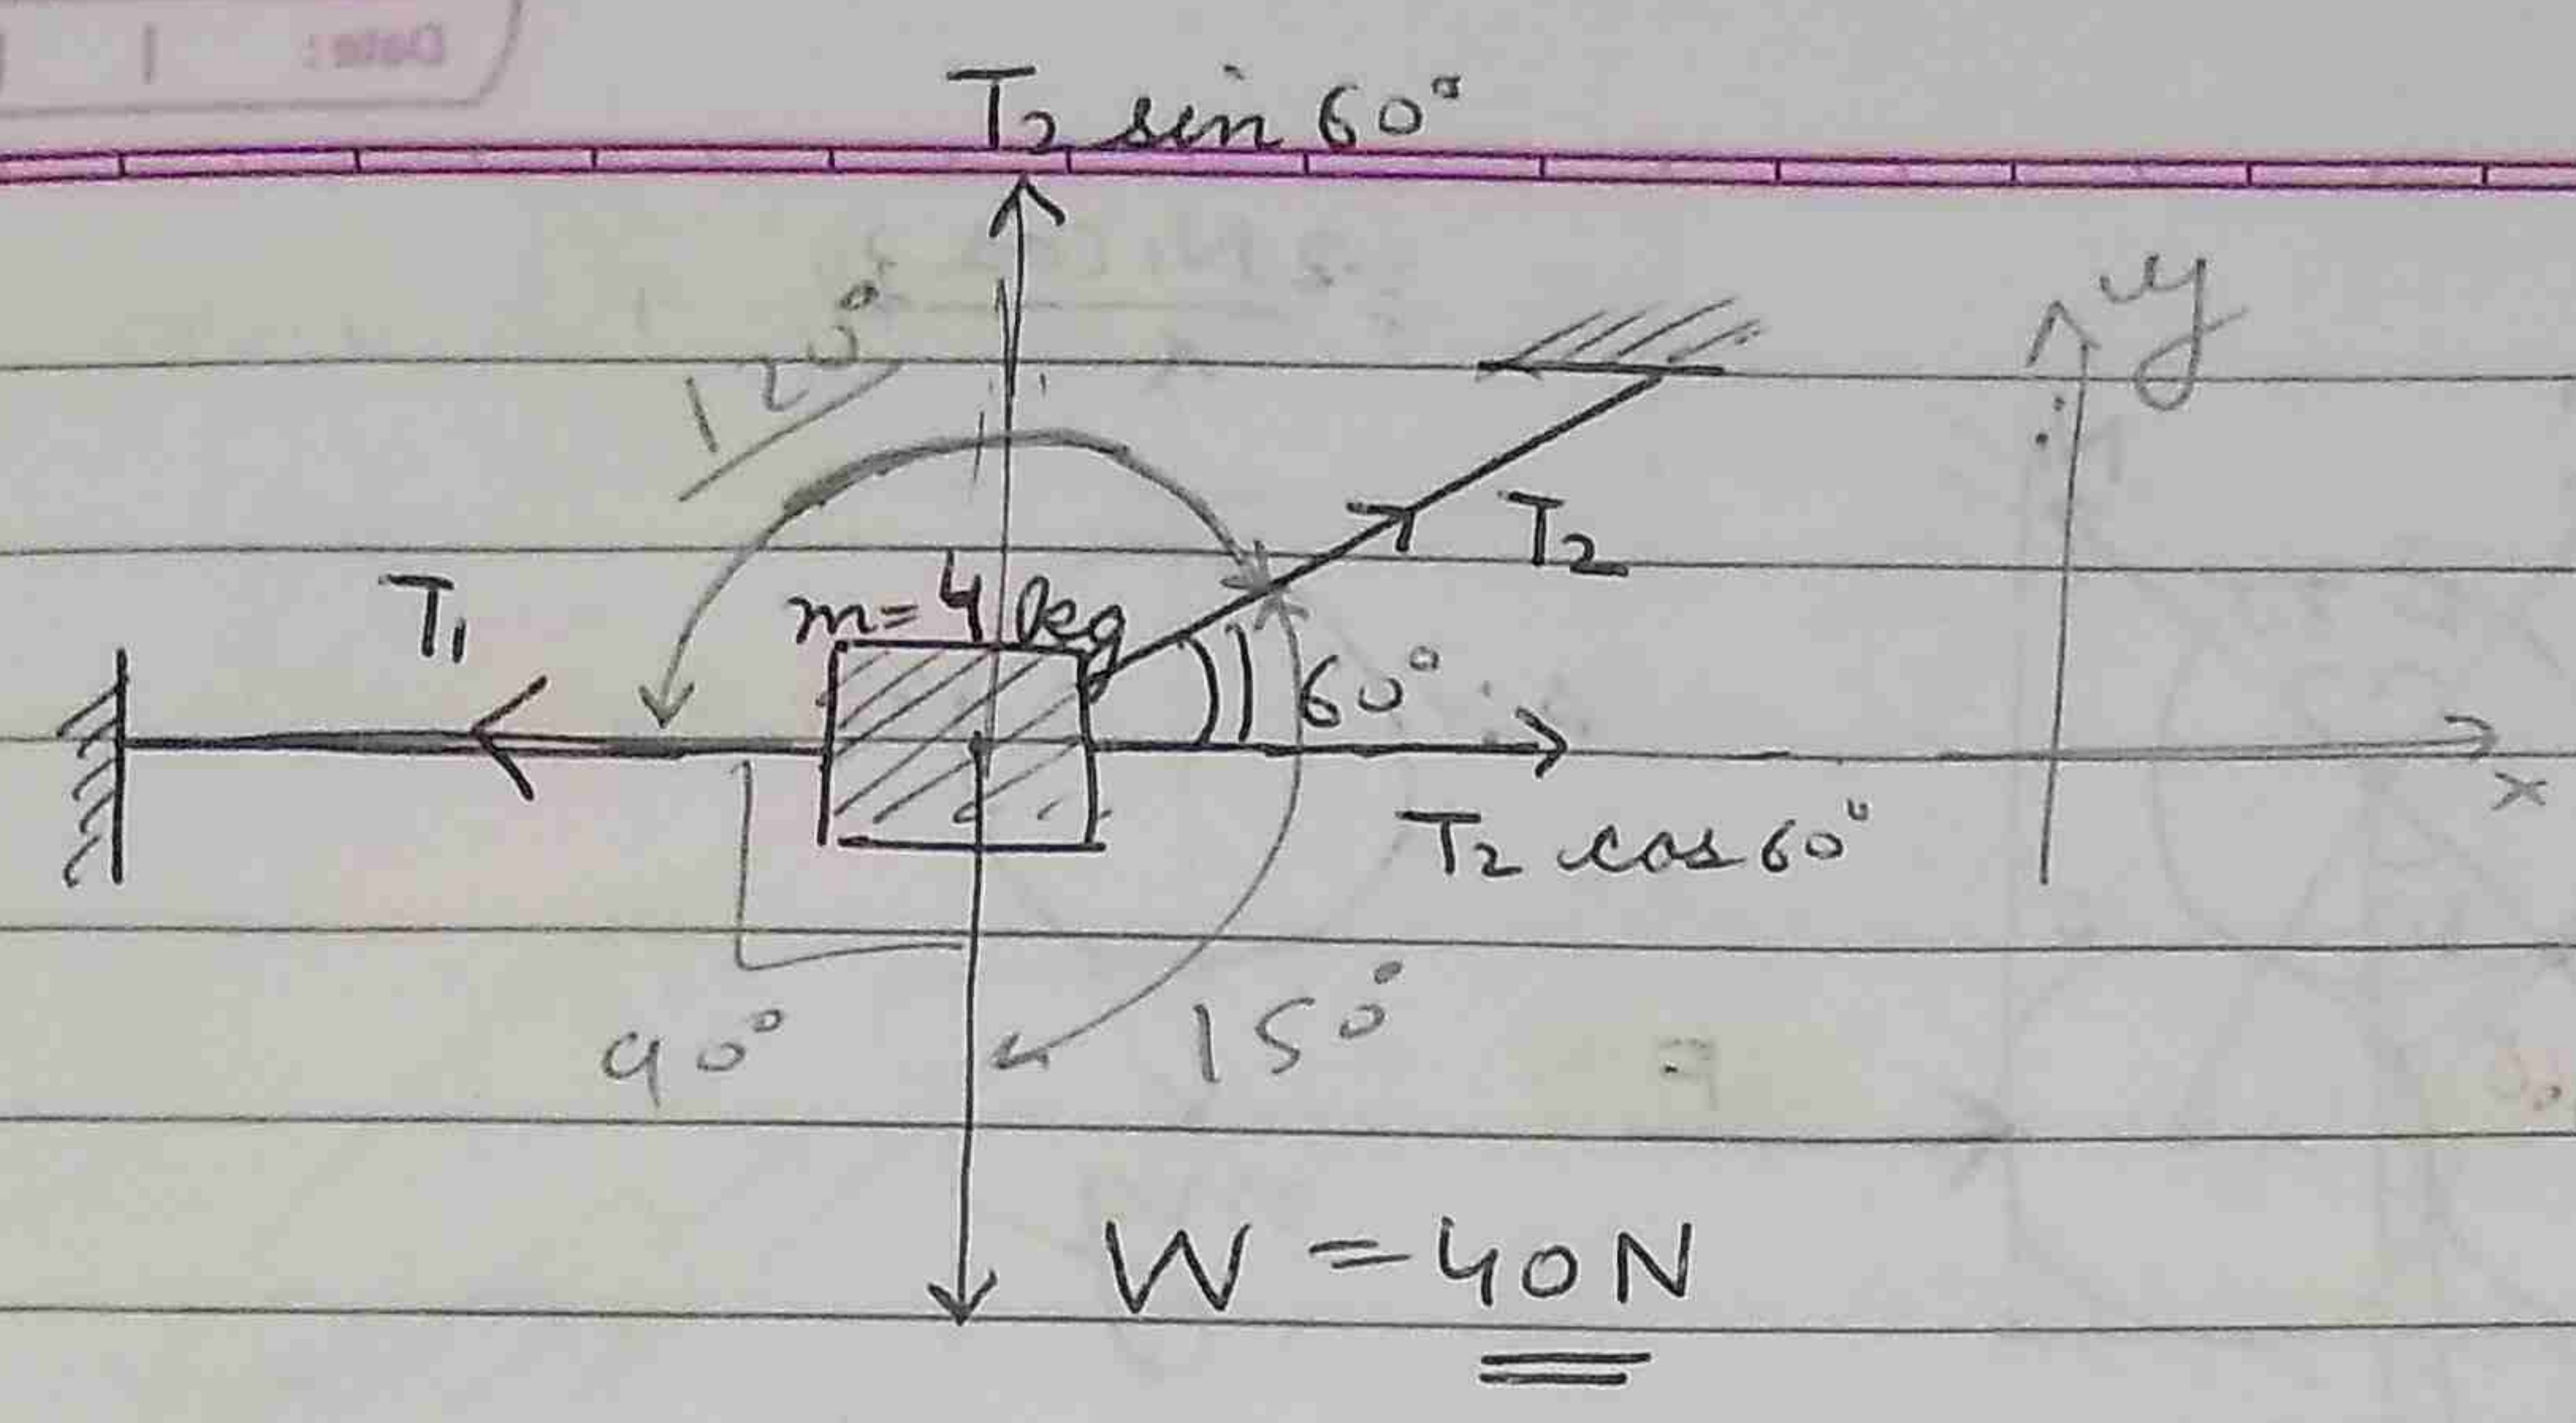 T₂ sin 60°
y
120°
T₂
T₁
m = 4 kg
60°
x
T₂ cos 60°
90°
150°
W = 40 N